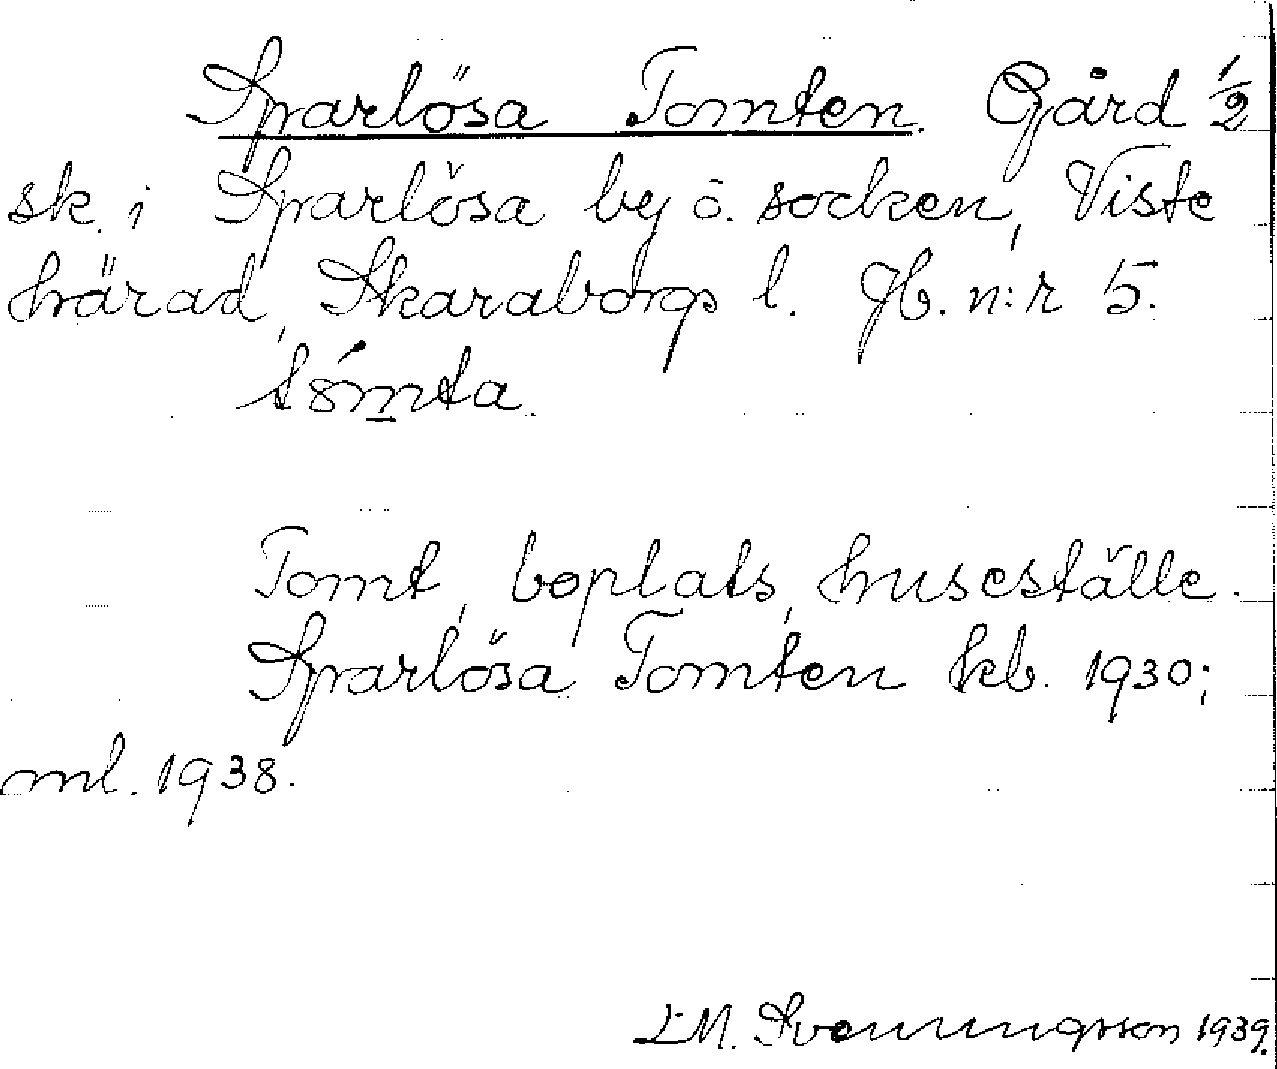 Sparlösa Tomten. Gård 1/2
sk. i Sparlösa by o. socken, Viste
härad, Skaraborgs l. Jb. n:r 5.
Tomt, boplats, huseställe.
Sparlösa Tomten kb. 1930;
ml. 1938.
L M. Svenningsson 1939.